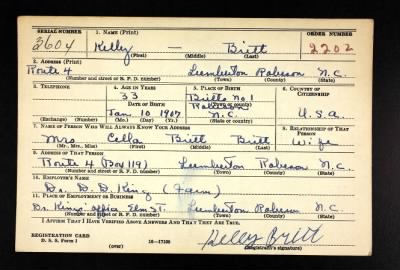 SERIAL NUMBER 1. NAME (Print) ORDER NUMBER
2604 Kelly — Britt 2202
(First) (Middle) (Last)
2. ADDRESS (Print)
Route 4 Lumberton Robeson N.C.
(Number and street or R. F. D. number) (Town) (County) (State)
3. TELEPHONE 4. AGE IN YEARS 5. PLACE OF BIRTH 6. COUNTRY OF CITIZENSHIP
33 Britts No 1
DATE OF BIRTH Robeson
Jan 10 1907 N.C. U.S.A.
(Exchange) (Number) (Mo.) (Day) (Yr.) (State or country)
7. NAME OF PERSON WHO WILL ALWAYS KNOW YOUR ADDRESS 8. RELATIONSHIP OF THAT PERSON
Mrs Britt Britt Wife
(Mr., Mrs., Miss) (First) (Middle) (Last)
9. ADDRESS OF THAT PERSON
Route 4 (Box 119) Lumberton Robeson N.C.
(Number and street or R. F. D. number) (Town) (County) (State)
10. EMPLOYER'S NAME
Dr. D. D. King (Farm)
11. PLACE OF EMPLOYMENT OR BUSINESS
Dr. Kings office Elm St. Lumberton Robeson N.C.
(Number and street or R. F. D. number) (Town) (County) (State)
I AFFIRM THAT I HAVE VERIFIED ABOVE ANSWERS AND THAT THEY ARE TRUE.
REGISTRATION CARD
D. S. S. Form 1 (over) 16—17105 Kelly Britt
(Registrant's signature)